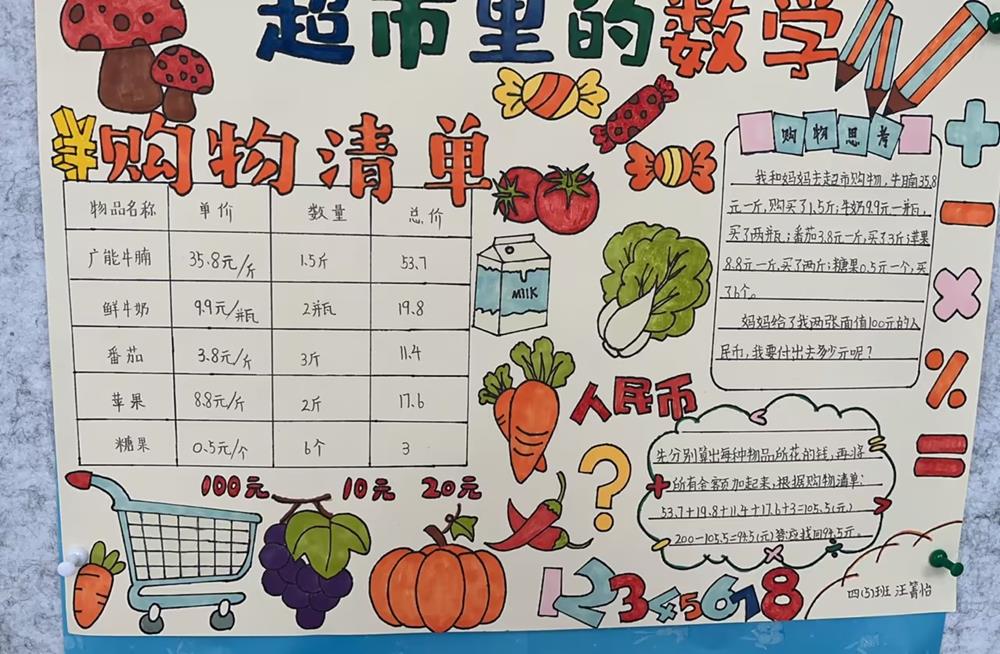 超市里的数学
¥购物清单
物品名称 单价 数量 总价
广能牛腩 35.8元/斤 1.5斤 53.7
鲜牛奶 9.9元/瓶 2瓶 19.8
番茄 3.8元/斤 3斤 11.4
苹果 8.8元/斤 2斤 17.6
糖果 0.5元/个 6个 3
MILK
购物思考
我和妈妈去超市购物,牛腩35.8
元一斤,购买了1.5斤;牛奶9.9元一瓶,
买了两瓶;番茄3.8元一斤,买了3斤;苹果
8.8元一斤,买了两斤;糖果0.5元一个,买
了6个。
妈妈给了我两张面值100元的人
民币,我要付出去多少元呢?
人民币
先分别算出每种物品所花的钱,再将
所有金额加起来,根据购物清单:
53.7+19.8+11.4+17.6+3=105.5(元)
200-105.5=94.5(元)答应找回94.5元。
100元 10元 20元
?
12345678
+
-
×
%
=
四(5)班 汪箐怡